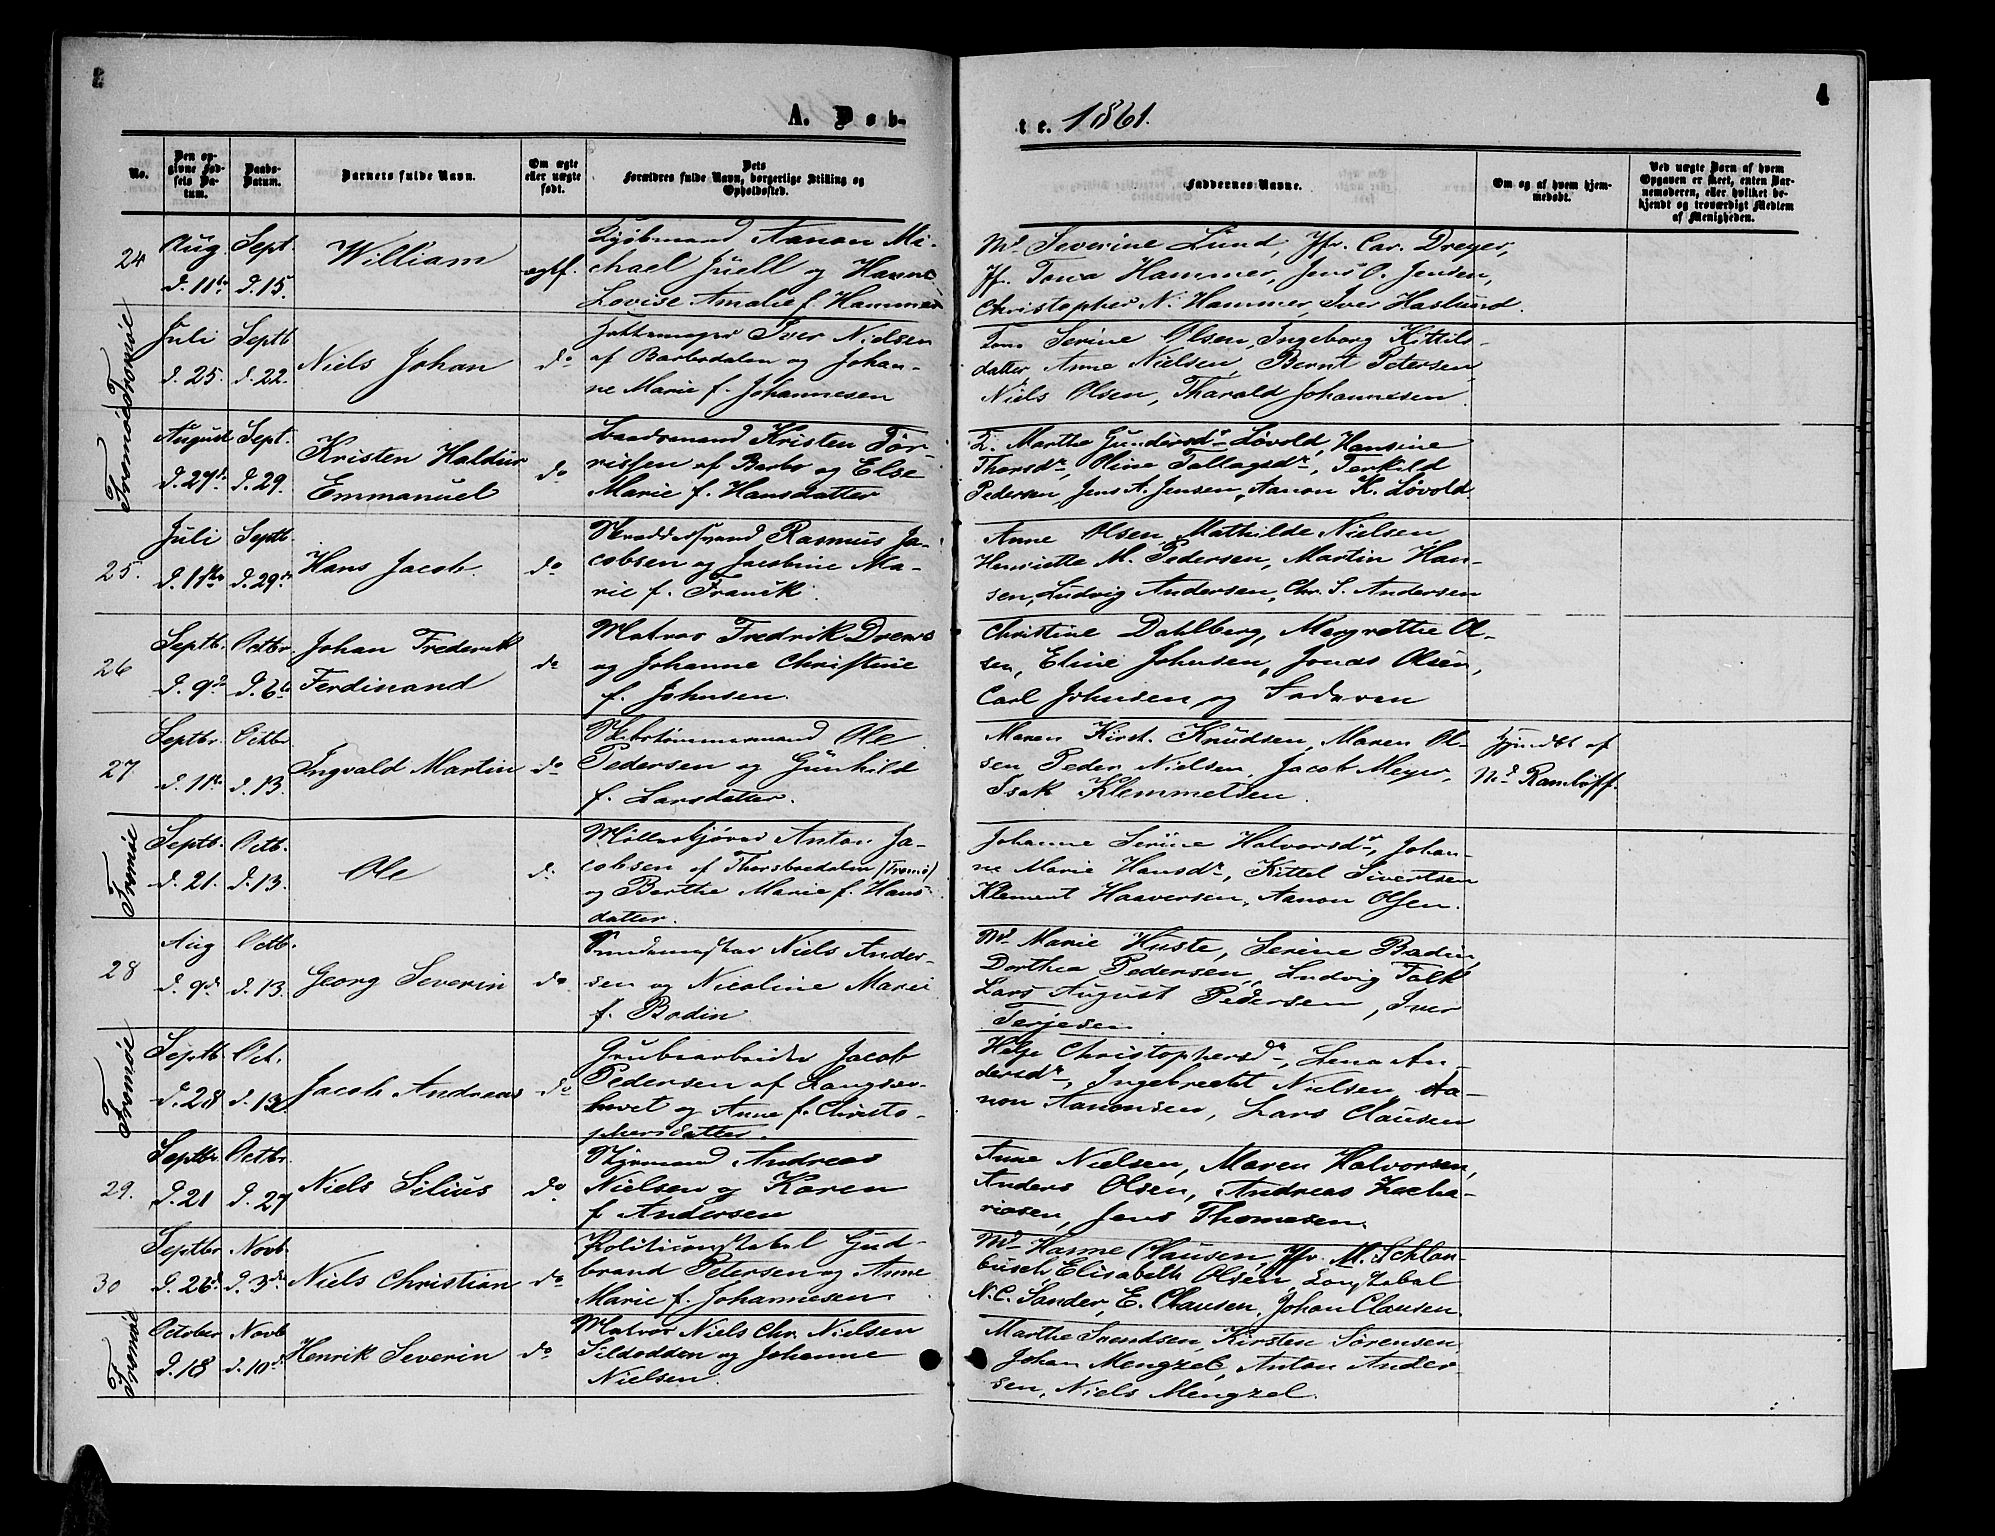 A. Døb-
te. 1861.
4
No.
Den opgivne Fødsels Datum.
Daabs-Datum.
Barnets fulde Navn.
Om ægte eller uægte født.
Dets Forældres fulde Navn, borgerlige Stilling og Opholdssted.
Faddernes Navne.
Om og af hvem hjemmedøbt.
Ved uægte Børn af hvem Opgaven er skeet, enten Barnemoderen, eller hvilket bekjendt og troværdigt Medlem af Menigheden.
24
Aug d. 11te
Sept d. 15.
William
ægtf.
Kjøbmand Aanon Mi-
chael Juell og Hanne
Lovise Amalie f. Hammer
Md Severine Lund, Jfr. Car. Dreyer,
Jf. Tona Hammer, Jens O. Jensen,
Christopher N. Hammer, Iver Haslund.
Tromøe
Juli d. 25.
Septb d. 22.
Niels Johan
do
Iver Nielsen
af Barbodalen og Johan-
ne Marie f. Johannesen
Serine Olsen, Ingeborg Kittils-
datter, Anne Nielsen, Bernt Petersen,
Niels Olsen, Tharald Johannesen.
Tromøe
August d. 27de
Sept. d. 29.
Kristen Haldur
Emmanuel
do
Kristen Tør-
rissen af Barbo og Else
Marie f. Hansdatter
Marthe Gundersdr Løvold, Hansine
Thorsdr, Oline Tallagsdr, Terkild
Pedersen, Jens A. Jensen, Aanon K. Løvold
25.
Juli
Septb. d. 29de
Hans Jacob.
do
Rasmus Ja-
cobsen og Jacobine Ma-
rie f. Franck.
Anne Olsen, Mathilde Nielsen
Henriette M. Pedersen, Martin Han-
sen, Ludvig Andersen, Chr. S. Andersen
26
Septb. d. 9de
Octbr. d. 6te
Johan Frederik
Ferdinand
do
Matros Fredrik Drews
og Johanne Christine
f. Johnsen.
Christine Dahlberg, Margrethe Ol-
sen, Eline Johnsen, Jonas Olsen,
Carl Johnsen og Faderen
27
Septbr. d. 11te
Octbr. d. 13.
Ingvald Martin
do
Skibstømmermand Ole
Pedersen og Gunhild
f. Larsdatter.
Maren Kirst. Knudsen, Maren Ol-
sen Peder Nielsen, Jacob Meyer,
Isak Klemmetsen.
af
Md Ramløff.
Tromøe
Septb. d. 21.
Octb. d. 13.
Ole
do
Anton Ja-
cobsen af Thorsbodalen (Tromø)
og Berthe Marie f. Hans
datter.
Johanne Serine Halvorsdr, Johan-
ne Marie Hansdr, Kittel Sivertsen
Klement Haaversen, Aanon Olsen.
28
Aug d. 9de
Octb. d. 13.
Georg Severin
do
Niels Ander-
sen og Nicoline Marie
f. Bodin.
Md Marie Huste, Serine Bodin,
Dorthea Pedersen, Ludvig Falk
Lars August Pedersen, Iver
Terjesen
Tromøe
Septb d. 28
Oct. d. 13
Jacob Andreas
do
Grubearbeider Jacob
Pedersen af Langsæ-
hovet og Anne f. Christo-
phersdatter.
Helje Christophersdr, Lena An-
dersdr, Ingebrecht Nielsen, Aa-
non Aanonsen, Lars Clausen
29.
Septbr d. 21
Octbr. d. 27
Niels Silius
do
Styrmand Andreas
Nielsen og Karen
f. Andersen
Anne Nielsen, Maren Halvorsen,
Anders Olsen, Andreas Zacha-
riasen, Jens Thomesen.
30
Septbr d. 26de
Novb. d. 3de
Niels Christian
do
Politiconstabel Gud-
brand Petersen og Anne
Marie f. Johannesen.
Md Hanne Clausen, Jfr. M. Schlan-
busch Elisabeth Olsen,
N.C. Sander, E. Clausen, Johan Clausen.
Tromøe
October d. 18
Novb d. 10de
Henrik Severin
do
Matros Niels Chr. Nielsen
Sildodden og Johanne
Nielsen.
Marthe Svendsen, Kirsten Sørensen,
Johan Mengzel, Anton Ander-
sen, Niels Mengzel.